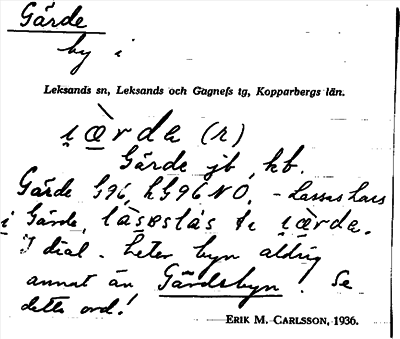 Gärde
by i
Leksands sn, Leksands och Gagnefs tg, Kopparbergs län.
i̯æ̀rda (r)
Gärde jb, kb.
Gärde G96, hG96NO. – Lassas Lars
i Gärde, làsəslás ti i̯æ̀rda.
I dial. heter byn aldrig
annat än Gärdsbyn. Se
detta ord!
ERIK M. CARLSSON, 1936.